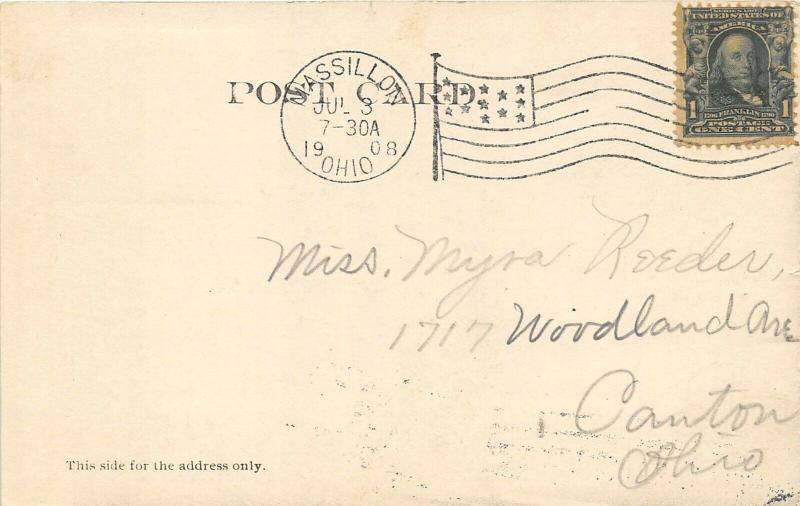 SERIES 1902
UNITED STATES OF
AMERICA
1 FRANKLIN 1
POSTAGE
ONE CENT
POST CARD
MASSILLON
JUL 3
7-30A
19 08
OHIO
Miss. Myra Reeder,
1717 Woodland Ave
Canton
Ohio
This side for the address only.